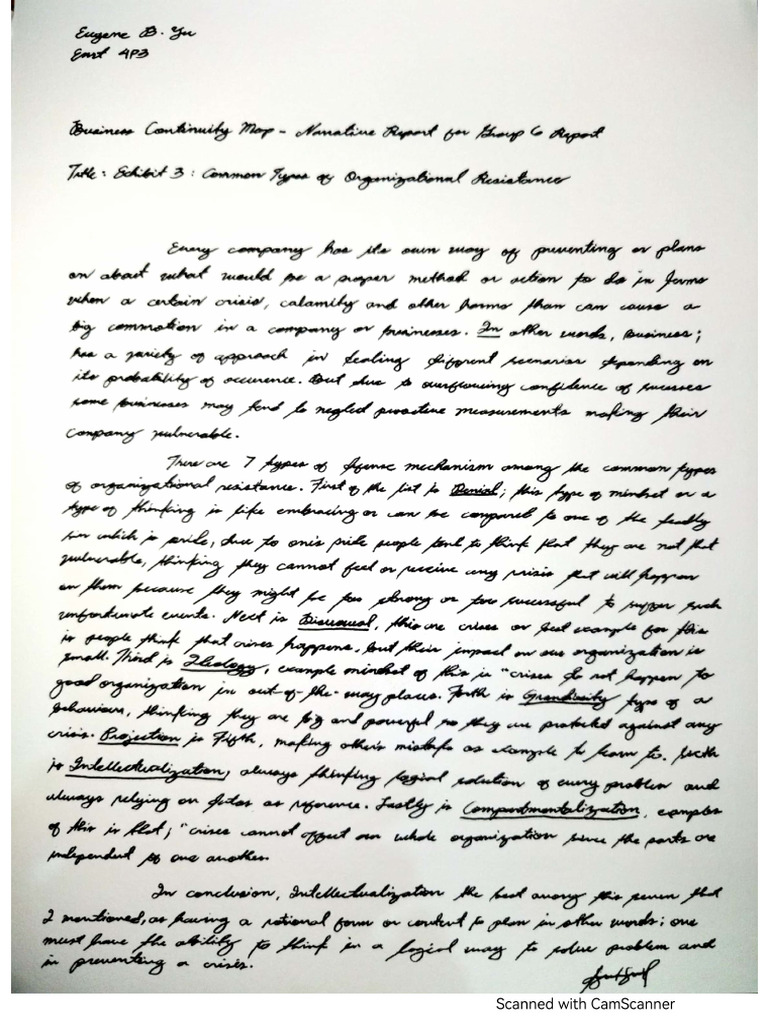 Eugene B. Yu
East 4P3
Business Continuity Map - Narrative Report for Group 6 Report
Title: Exhibit 3: Common Types of Organizational Resistance
Every company has its own way of preventing or plans
on about what would be a proper method or action to do in terms
when a certain crisis, calamity and other harms than can cause a
big commotion in a company or businesses. In other words, business;
has a variety of approach in dealing different scenarios depending on
its probability of occurence. But due to overflowing confidence of successes
some businesses may tend to neglect proactive measurements making their
company vulnerable.
There are 7 types of defense mechanism among the common types
of organizational resistance. First of the list is Denial; this type of mindset or a
type of thinking is like embracing or can be compared to one of the deadly
sin which is pride, due to one's pride people tend to think that they are not that
vulnerable, thinking they cannot feel or receive any crisis that will happen
on them because they might be too strong or too successful to suffer such
unfortunate events. Next is Disavowal, this are crises or best example for this
is people think that crises happens, but their impact on our organization is
small. Third is Idealogy, example mindset of this is "crises do not happen to
good organization in out-of-the-way places. Forth is Grandiosity type of a
behaviour, thinking they are big and powerful so they are protected against any
crisis. Projection is Fifth, making other's mistake as example to learn to. Sixth
is Intellectualization, always thinking logical solution of every problem and
always relying on as reference. Lastly is Compartmentalization, examples
of this is that; "crises cannot affect our whole organization since the parts are
independent of one another.
In conclusion, Intellectualization the best among this seven that
I mentioned, as having a rational form or content to plan in other words; one
must have the ability to think in a logical way to solve problem and
in preventing a crisis.
Scanned with CamScanner